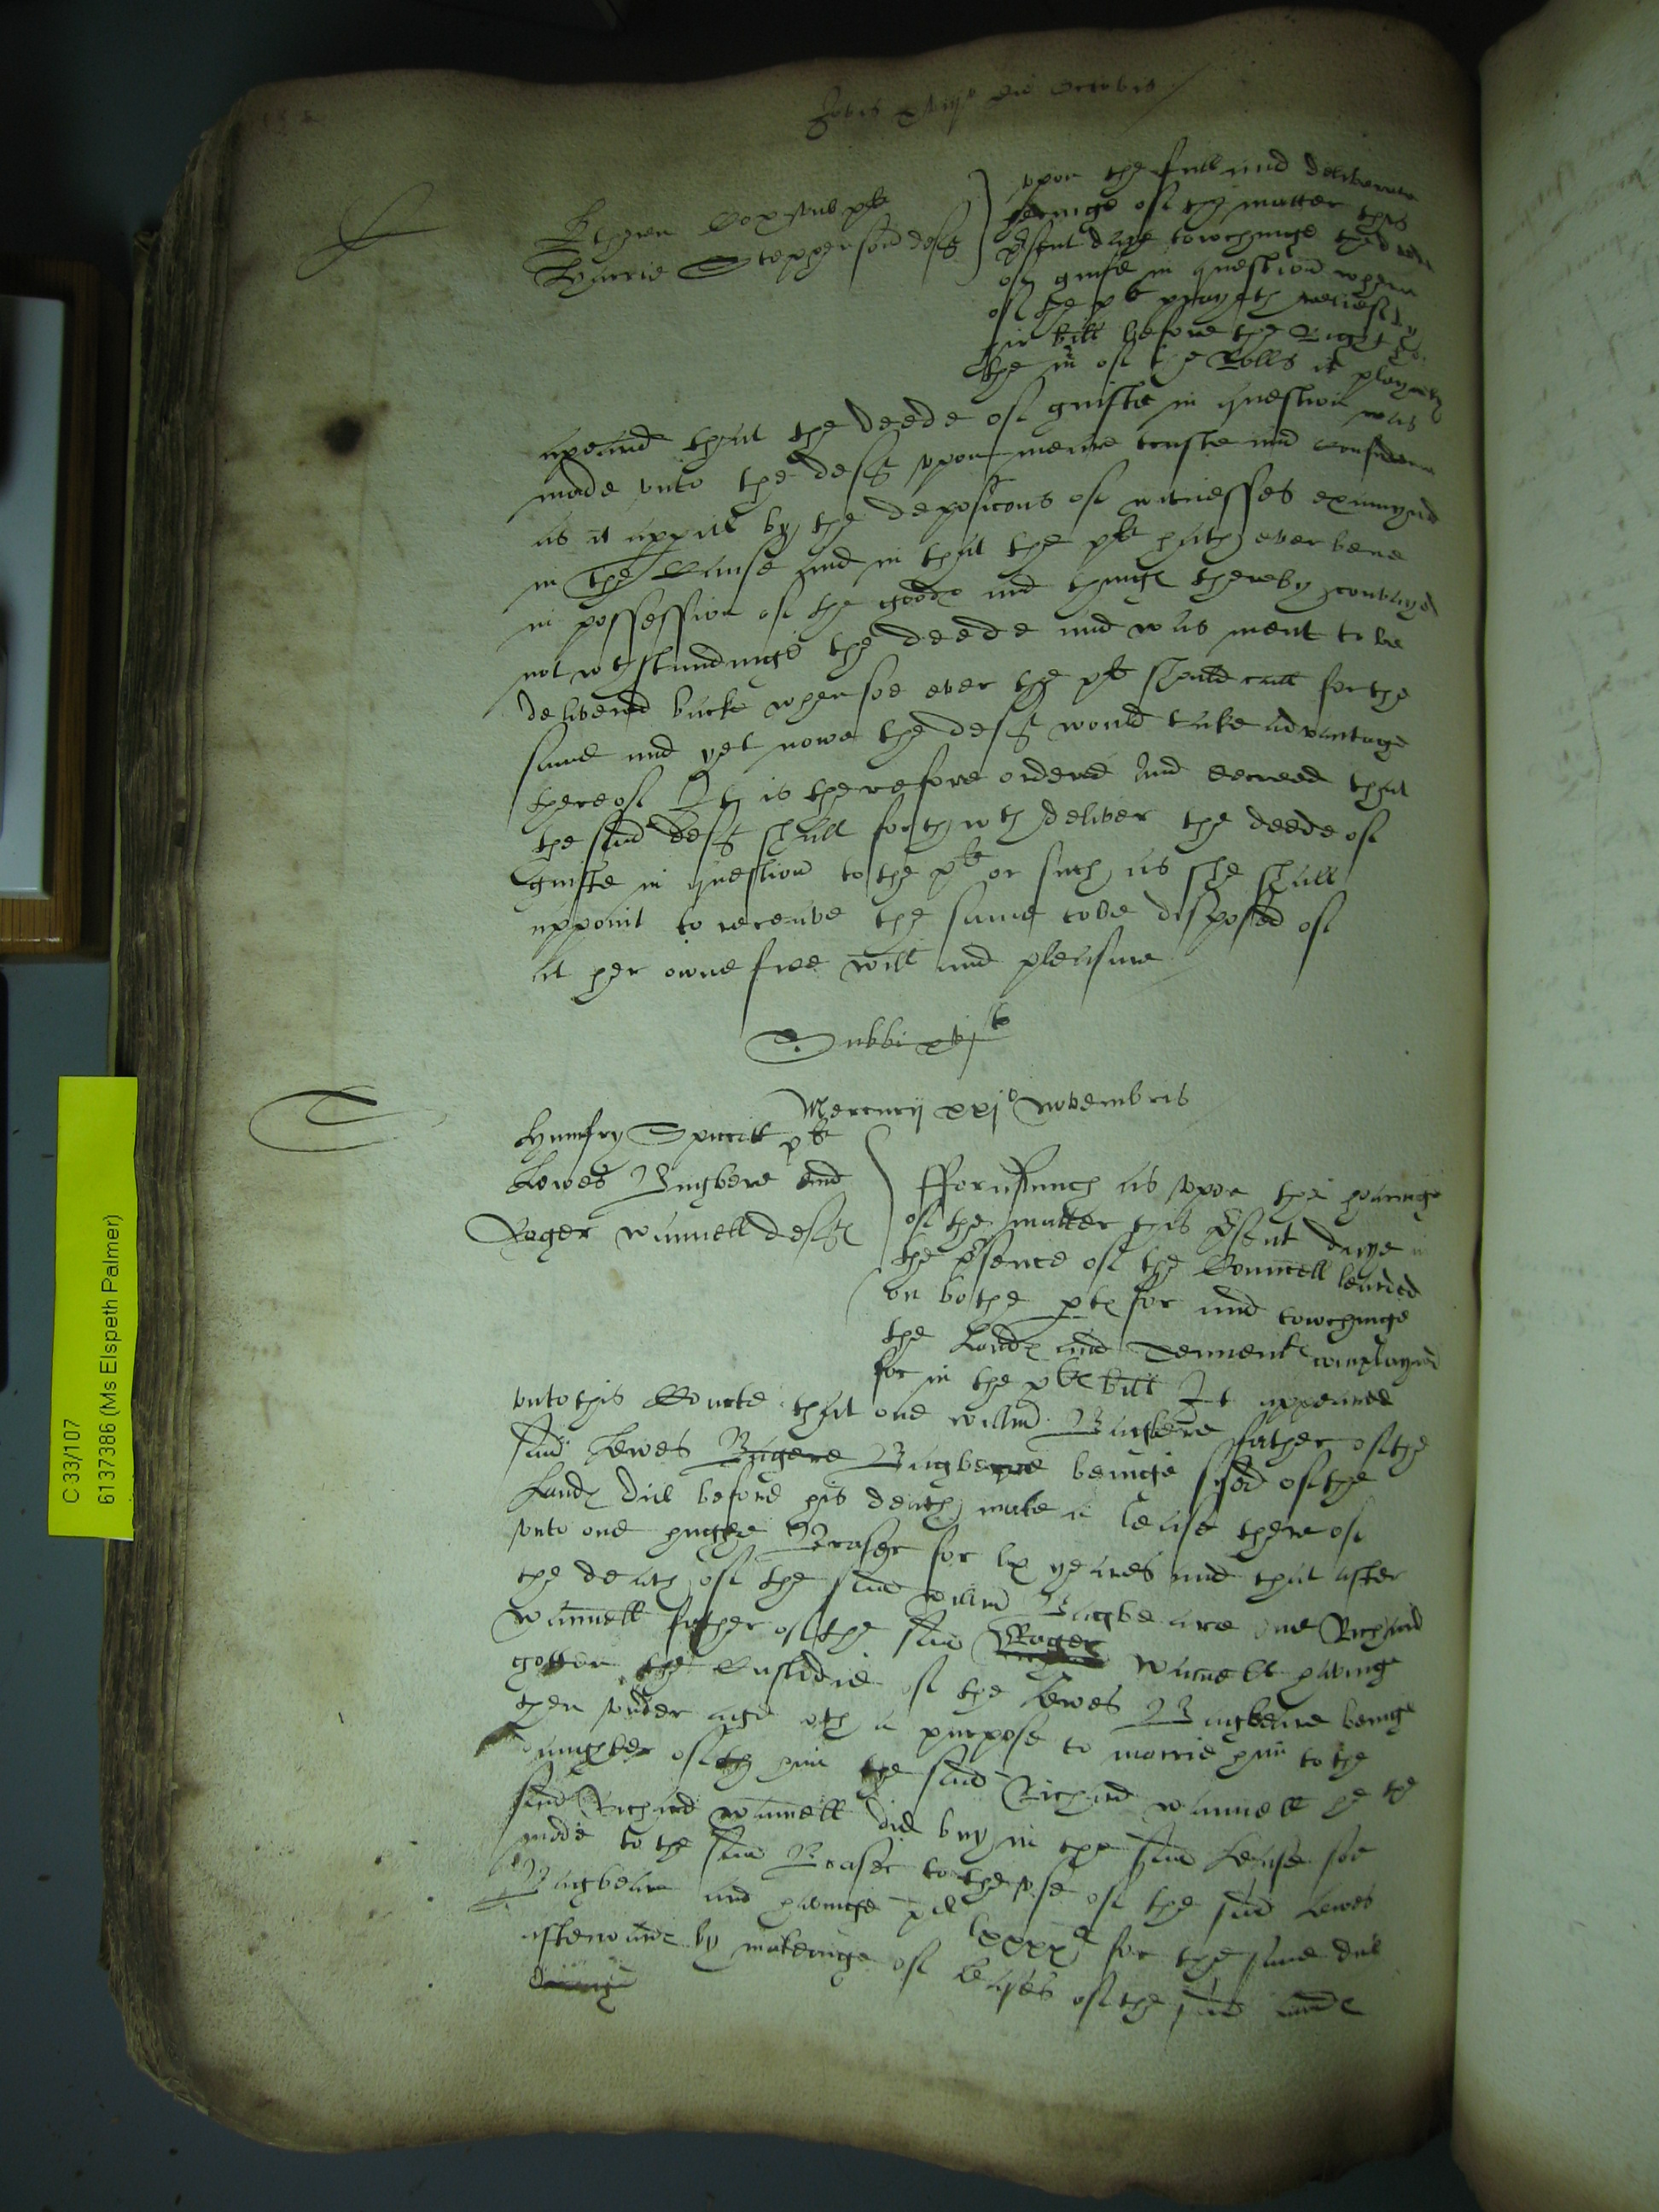 Jovis xviijo die Octobris
upon the full and deliberate
hearinge of the matter this
Harrie Stepgenson deft
p'sent daye towchinge the deede
of guifte in question wherin
of the plt prayeth reliefe by
hir bill before the Right
the m of the Rolls it playnely
apeared that the deede of guifte in question was
made unto the deft upon meare truste and confidence
as it appeared by the deposicons of witnesses examyned
in the Cause and in that the plt hath ever bene
in possession of the goodes and thinges thereby convayed
notwthstandinge the deede and was ment to be
delivered backe whensoe ever the plt should call for the
same and yet nowe the deft would take advantage
thereof It is therefore ordered and decreed that
the said deft shall forthwth deliver the deede of
guifte in question to the plt or such as she shall
appoint to receave the same to be disposed of
at her owne free will and pleasure
Sabbi
Mercurij xxjo Novembris
Humfry Spurell plt
Lewes Bugbere and
Roger Wannell deftes
Fforasmuch as upon the hearinge
of the matter this p'sent daye in
the p'sence of the Councell learned
on bothe ptes for and towchinge
the Landes and Tenementes complayned
for in the pltes bill It appeared
unto this Courte that one Willm Bugbere father of the
said Lewes Bugere Bugbeare beinge sesed of the
Landes did before his death make a lease thereof
unto one Fraser for lx yeares and that after
the death of the said Willm Bugbeare one Richard
Wannell father of the said Roger Wannell havinge
gotten the Custodie of the Lewes Bugbeare beinge
then under age wth a purpose to marrie him to the
daughter of him the said Richard Wannell he the
said Richard Wannell did buy in the said Lease soe
made to the said Fraser to the use of the said Lewes
Bugbeare and havinge pd lxxxxl for the same did
afterwardes by makeinge of Leases of the said Landes
C 33/107
6137386 (Ms Elspeth Palmer)